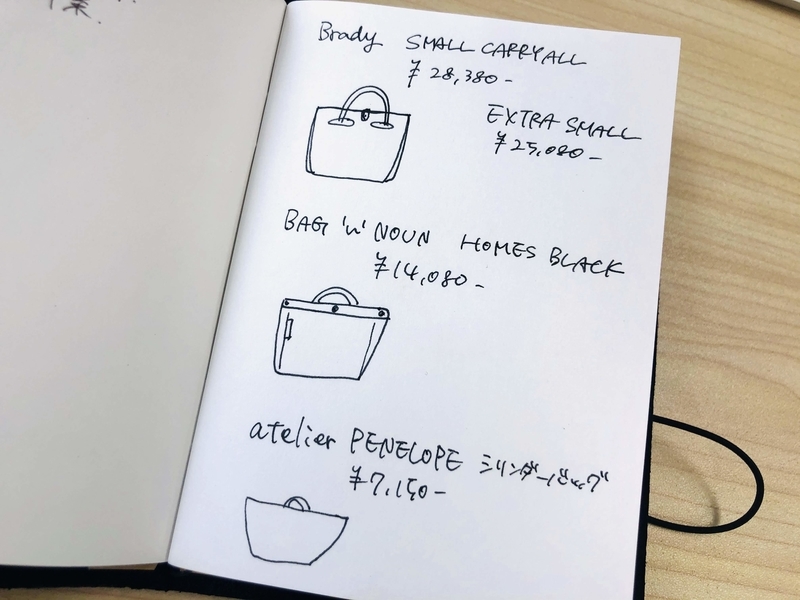 業
Brady SMALL CARRYALL
¥28,380-
EXTRA SMALL
¥25,080-
BAG 'n' NOUN HOMES BLACK
¥14,080-
atelier PENELOPE シリンダーバッグ
¥7,150-